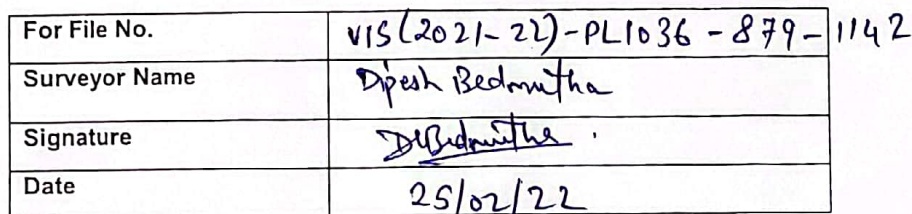 For File No. VIS(2021-22)-PL1036-879-1142
Surveyor Name Dipesh Bedmutha
Signature DLBedmutha.
Date 25/02/22